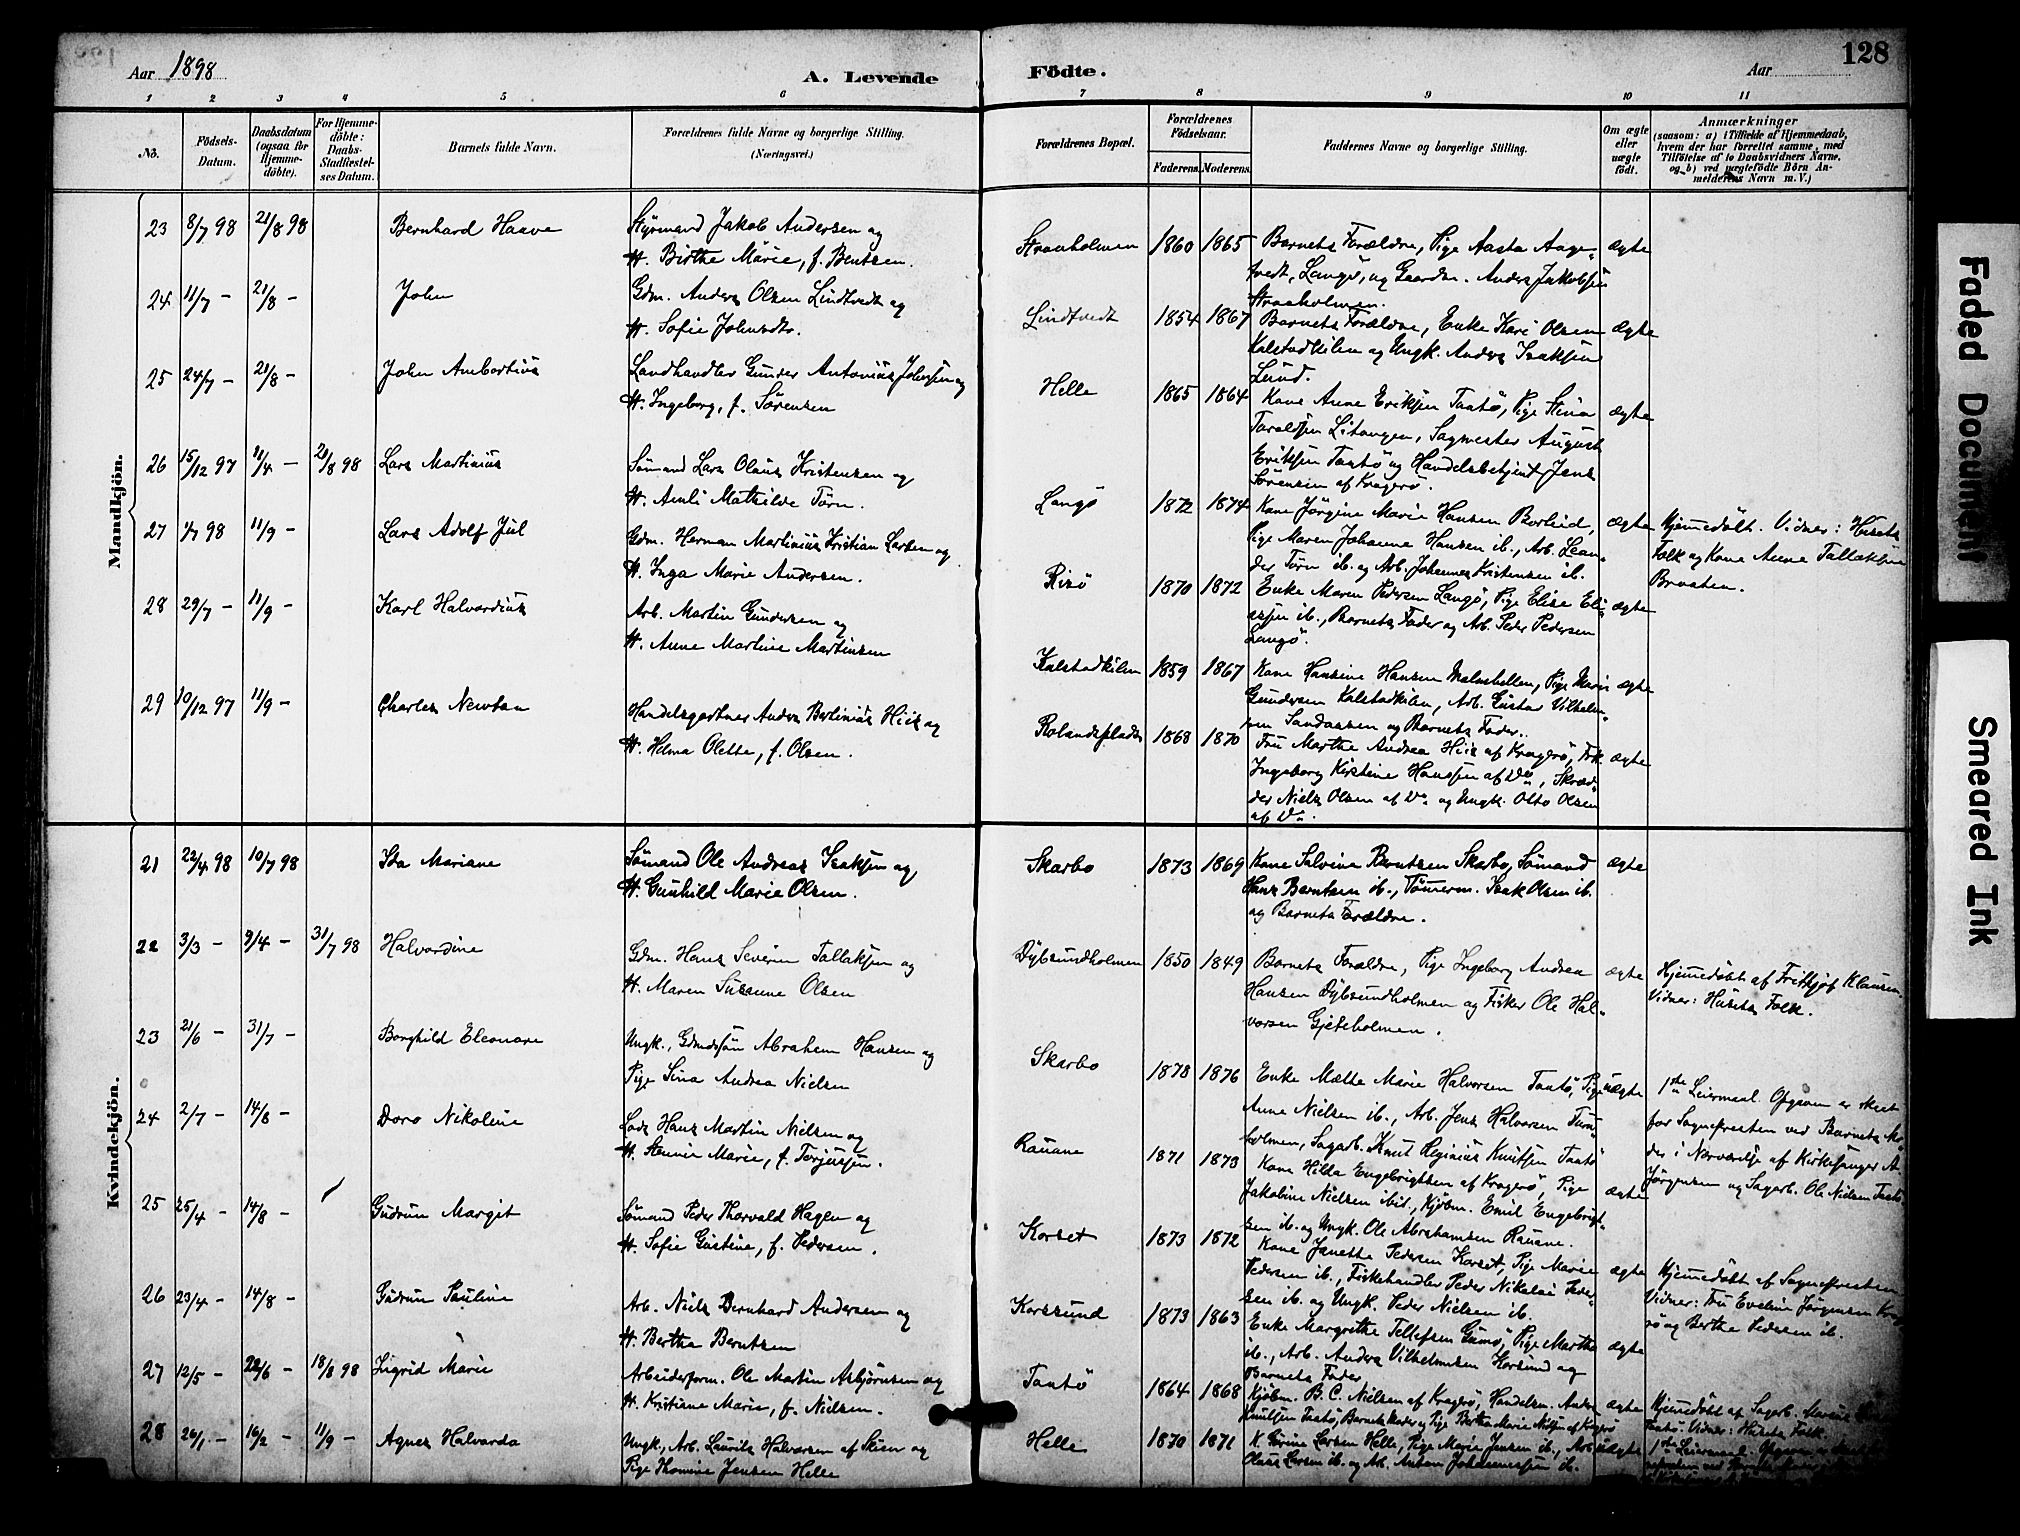 128
Aar 1898
A. Levende
Födte.
Aar
1 2 3 4 5 6 7 8 9 10 11
No.
Födsels-Datum.
Daabsdatum (ogsaa for Hjemme-döbte).
For Hjemme-döbte: Daabs-Stadfæstel-ses Datum.
Barnets fulde Navn.
Forældrenes fulde Navne og borgerlige Stilling.
(Næringsvei.)
Forældrenes Bopæl.
Forældrenes Födselsaar.
Faderens. Moderens.
Faddernes Navne og borgerlige Stilling.
Om ægte eller uægte födt.
Anmærkninger
(saasom: a) i Tilfælde af Hjemmedaab, hvem der har forrettet samme, med Tilföielse af to Daabsvidners Navne, og b) ved uægtefödte Börn An-melderens Navn m. V.)
Mandkjön.
23 8/7 98 21/8 98 Bernhard Haave
Styrmand Jakob Andersen og
H. Birthe Marie, f. Bentsen.
Straaholmen 1860 1865
Barnets Forældre, Pige Aasta Aage-
tvedt, Langø, og Gaardm. Anders Jakobsen
Straaholmen.
ægte
24 11/7 – 21/8 – John
Gdm. Anders Olsen Lindtvedt og
H. Sofie Johnsdtr.
Lindtvedt 1854 1867
Barnets Forældre, Enke Kari Olsen
Kalstadkilen og Ungk. Anders Isaksen
Lund.
ægte
25 24/7 – 21/8 – John Ambortius
Landhandler Gunder Antonius Johnsen og
H. Ingeborg, f. Sørensen
Helle 1865 1864
Kone Anne Eriksen Taatø, Pige Stina
Taraldsen Litangen, Sagmester August
Eriksen Taatø og Handelsbetjent Jens
Sørensen af Kragerø.
ægte
26 15/12 97 11/4 – 21/8 98 Lars Martinius
Sømand Lars Olaus Kristensen og
H. Amli Mathilde Tørn.
Langø 1872 1874
Kone Jørgine Marie Hansen Barlied,
Pige Maren Johanne Hansen ib., Arb. Lean-
der Tørn ib. og Arb. Johannes Kristensen ib.
ægte
Hjemmedøbt. Vidner: Husets
Folk og Kone Anne Tallaksen
Braaten.
27 1/7 98 11/9 – Lars Adolf Jul
Gdm. Herman Martinius Kristian Larsen og
H. Inga Marie Andersen.
Risø 1870 1872
Enke Maren Pedersen Langø, Pige Elise Eli-
assen ib., Barnets Fader og Arb. Peder Pedersen
Langø.
ægte
28 29/7 – 11/9 – Karl Halvardius
Arb. Martin Gundersen og
H. Anne Martine Martinsen
Kalstadkilen 1859 1867
Kone Hansine Hansen Malmhellen, Pige Marie
Gundersen Kalstadkilen, Arb. Gustav Vilhelm-
sen Sandaasen og Barnets Fader.
ægte
29 10/12 97 11/9 – Charles Newton
Handelsgartner Anders Berlinius Hiis og
H. Helma Olette, f. Olsen.
Rolandspladn 1868 1870
Fru Marthe Andrea Hiis af Kragerø, Frk.
Ingeborg Kirstine Hanssen af Do, Skræd-
der Niels Olsen af Do og Ungk. Otto Olsen
af Do.
ægte
Kvindekjön.
21 22/4 98 10/7 98 Ida Mariane
Sømand Ole Andreas Isaksen og
H. Gunhild Marie Olsen.
Skarbo 1873 1869
Kone Salvine Berntsen Skarbo, Sømand
Hans Berntsen ib., Tømerm. Isak Olsen ib.
og Barnets Forældre.
ægte
22 3/3 – 9/4 – 31/7 98 Halvardine
Gdm. Hans Severin Tallaksen og
H. Maren Susanne Olsen
Dybsundholmen 1850 1849
Barnets Forældre, Pige Ingeborg Andrea
Hansen Dybsundholmen og Fisker Ole Hal-
vorsen Gjeteholmen.
ægte
Hjemmedøbt af Frithjof Klausen.
Vidner: Husets Folk.
23 21/6 – 31/7 – Borghild Eleonore
Ungk., Gdmdssøn Abraham Hansen og
Pige Sina Andrea Nielsen
Skarbo 1878 1876
Enke Mælte Marie Halvorsen Taatø, Pige
Anne Nielsen ib., Arb. Jens Halvorsen Furu-
holmen, Sagarb. Knut Reginius Knutsen Taatø
uægte
1ste Leiermaal. Opgaven er skeet
for Sognepresten ved Barnets Mo-
der i Nærværelse af Kirkesanger A.
Jørgensen og Sagarb. Ole Nielsen Taatø.
24 2/7 – 14/8 – Dora Nikoline
Lods Hans Martin Nielsen og
H. Stennie Marie, f. Terjussen.
Rauane 1871 1873
Kone Hilda Engebrigtsen af Kragerø, Pige
Jakobine Nielsen ibid., Kjøbm. Emil Engebrigt-
sen ib. og Ungk. Ole Abrahamsen Rauane.
ægte
25 25/4 – 14/8 – Gudrun Margit
Sømand Peder Thorvald Hagen og
H. Sofie Gustine, f. Pedersen.
Korset 1873 1872
Kone Janette Pedersen Korset, Pige Marie
Pedersen ib., Fiskehandler Peder Nikolai Peder-
sen ib. og Ungk. Peder Nielsen ib.
ægte
Hjemmedøbt af Sognepresten.
Vidner: Fru Eveline Jørgensen Krag-
rø og Berthe Pedersen ib.
26 23/4 – 14/8 – Gudrun Pauline
Arb. Niels Bernhard Andersen og
H. Berthe Berntsen
Korssund 1873 1863
Enke Margrethe Tellefsen Gumø, Pige Marthe
ib., Arb. Anders Vilhelmsen Korsund og
Barnets Fader
ægte
27 12/5 – 22/6 – 18/8 98 Ingrid Marie
Arbeiderform. Ole Martin Asbjørnsen og
H. Kristiane Marie, f. Nielsen.
Taatø 1864 1868
Kjøbm. B. C. Nielsen af Kragerø, Handelsm. Anders
Knutsen Taatø, Barnets Fader og Pige Bertha Marie Nilsen af Kragerø
ægte
Hjemmedøbt af Sagarb.
Taatø. Vidner: Husets Folk.
28 26/1 – 16/2 – 11/9 – Agnes Halvarda
Ungk., Arb. Laurits Halvorsen af Skien og
Pige Thomine Jensen Helle
Helle 1870 1871
K. Gurine Larsen Helle, Pige Marie Jensen ib., Arb.
Olaus Larsen ib. og Arb. Anton Johannessen ib.
uægte
1ste Leiermaal. Opgaven
Faded Document
Smeared Ink